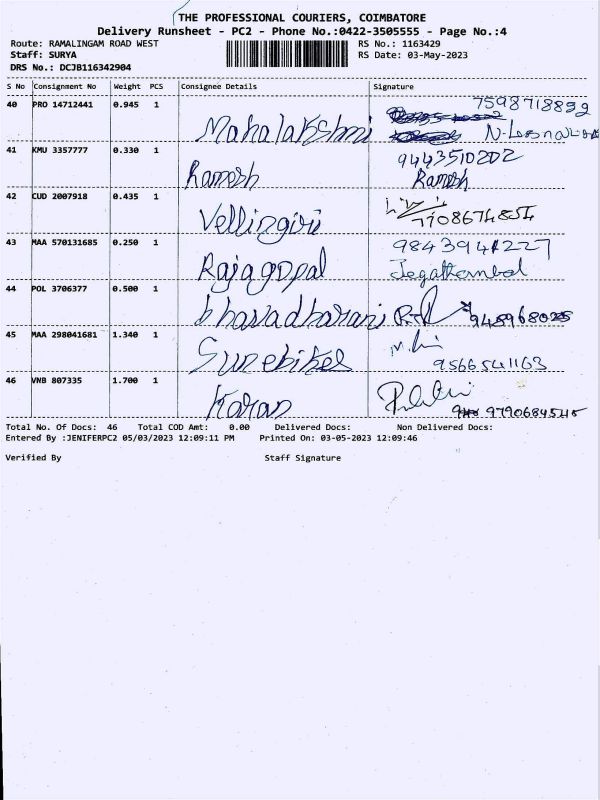 THE PROFESSIONAL COURIERS, COIMBATORE
Delivery Runsheet - PC2 - Phone No.:0422-3505555 - Page No.:4
Route: RAMALINGAM ROAD WEST RS No.: 1163429
Staff: SURYA RS Date: 03-May-2023
DRS No.: DCJB116342904
S No Consignment No Weight PCS Consignee Details Signature
40 PRO 14712441 0.945 1 Mahalakshmi 7598718892
41 KMU 3357777 0.330 1 Ramesh 9443510202
Ramesh
42 CUD 2007918 0.435 1 Vellingiri 7708674854
43 MAA 570131685 0.250 1 Rajagopal 9843941227
Jegathambal
44 POL 3706377 0.500 1 bhavadharani
45 MAA 298041681 1.340 1 9566541163
46 VNB 807335 1.700 1 Karan 9790684545
Total No. Of Docs: 46 Total COD Amt: 0.00 Delivered Docs: Non Delivered Docs:
Entered By :JENIFERPC2 05/03/2023 12:09:11 PM Printed On: 03-05-2023 12:09:46
Verified By Staff Signature